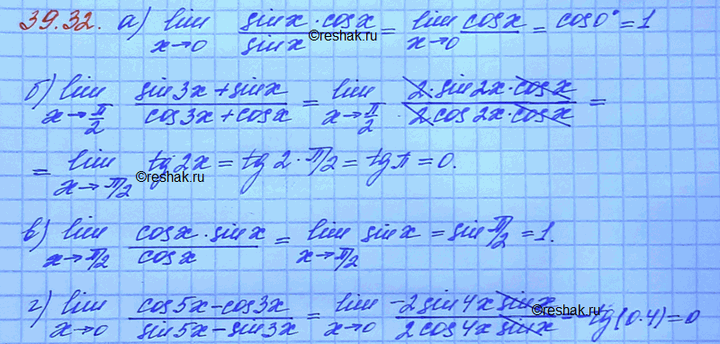 39.32. а) lim x→0 sinx·cosx / sinx = lim x→0 cosx = cos0° = 1
©reshak.ru
б) lim x→π/2 sin3x+sinx / cos3x+cosx = lim x→π/2 2·sin2x·cosx / 2cos2x·cosx =
= lim x→π/2 tg2x = tg2·π/2 = tgπ = 0.
©reshak.ru
в) lim x→π/2 cosx·sinx / cosx = lim x→π/2 sinx = sin π/2 = 1.
г) lim x→0 cos5x-cos3x / sin5x-sin3x = lim x→0 -2sin4x sinx / 2cos4x sinx = -tg(0·4) = 0
©reshak.ru